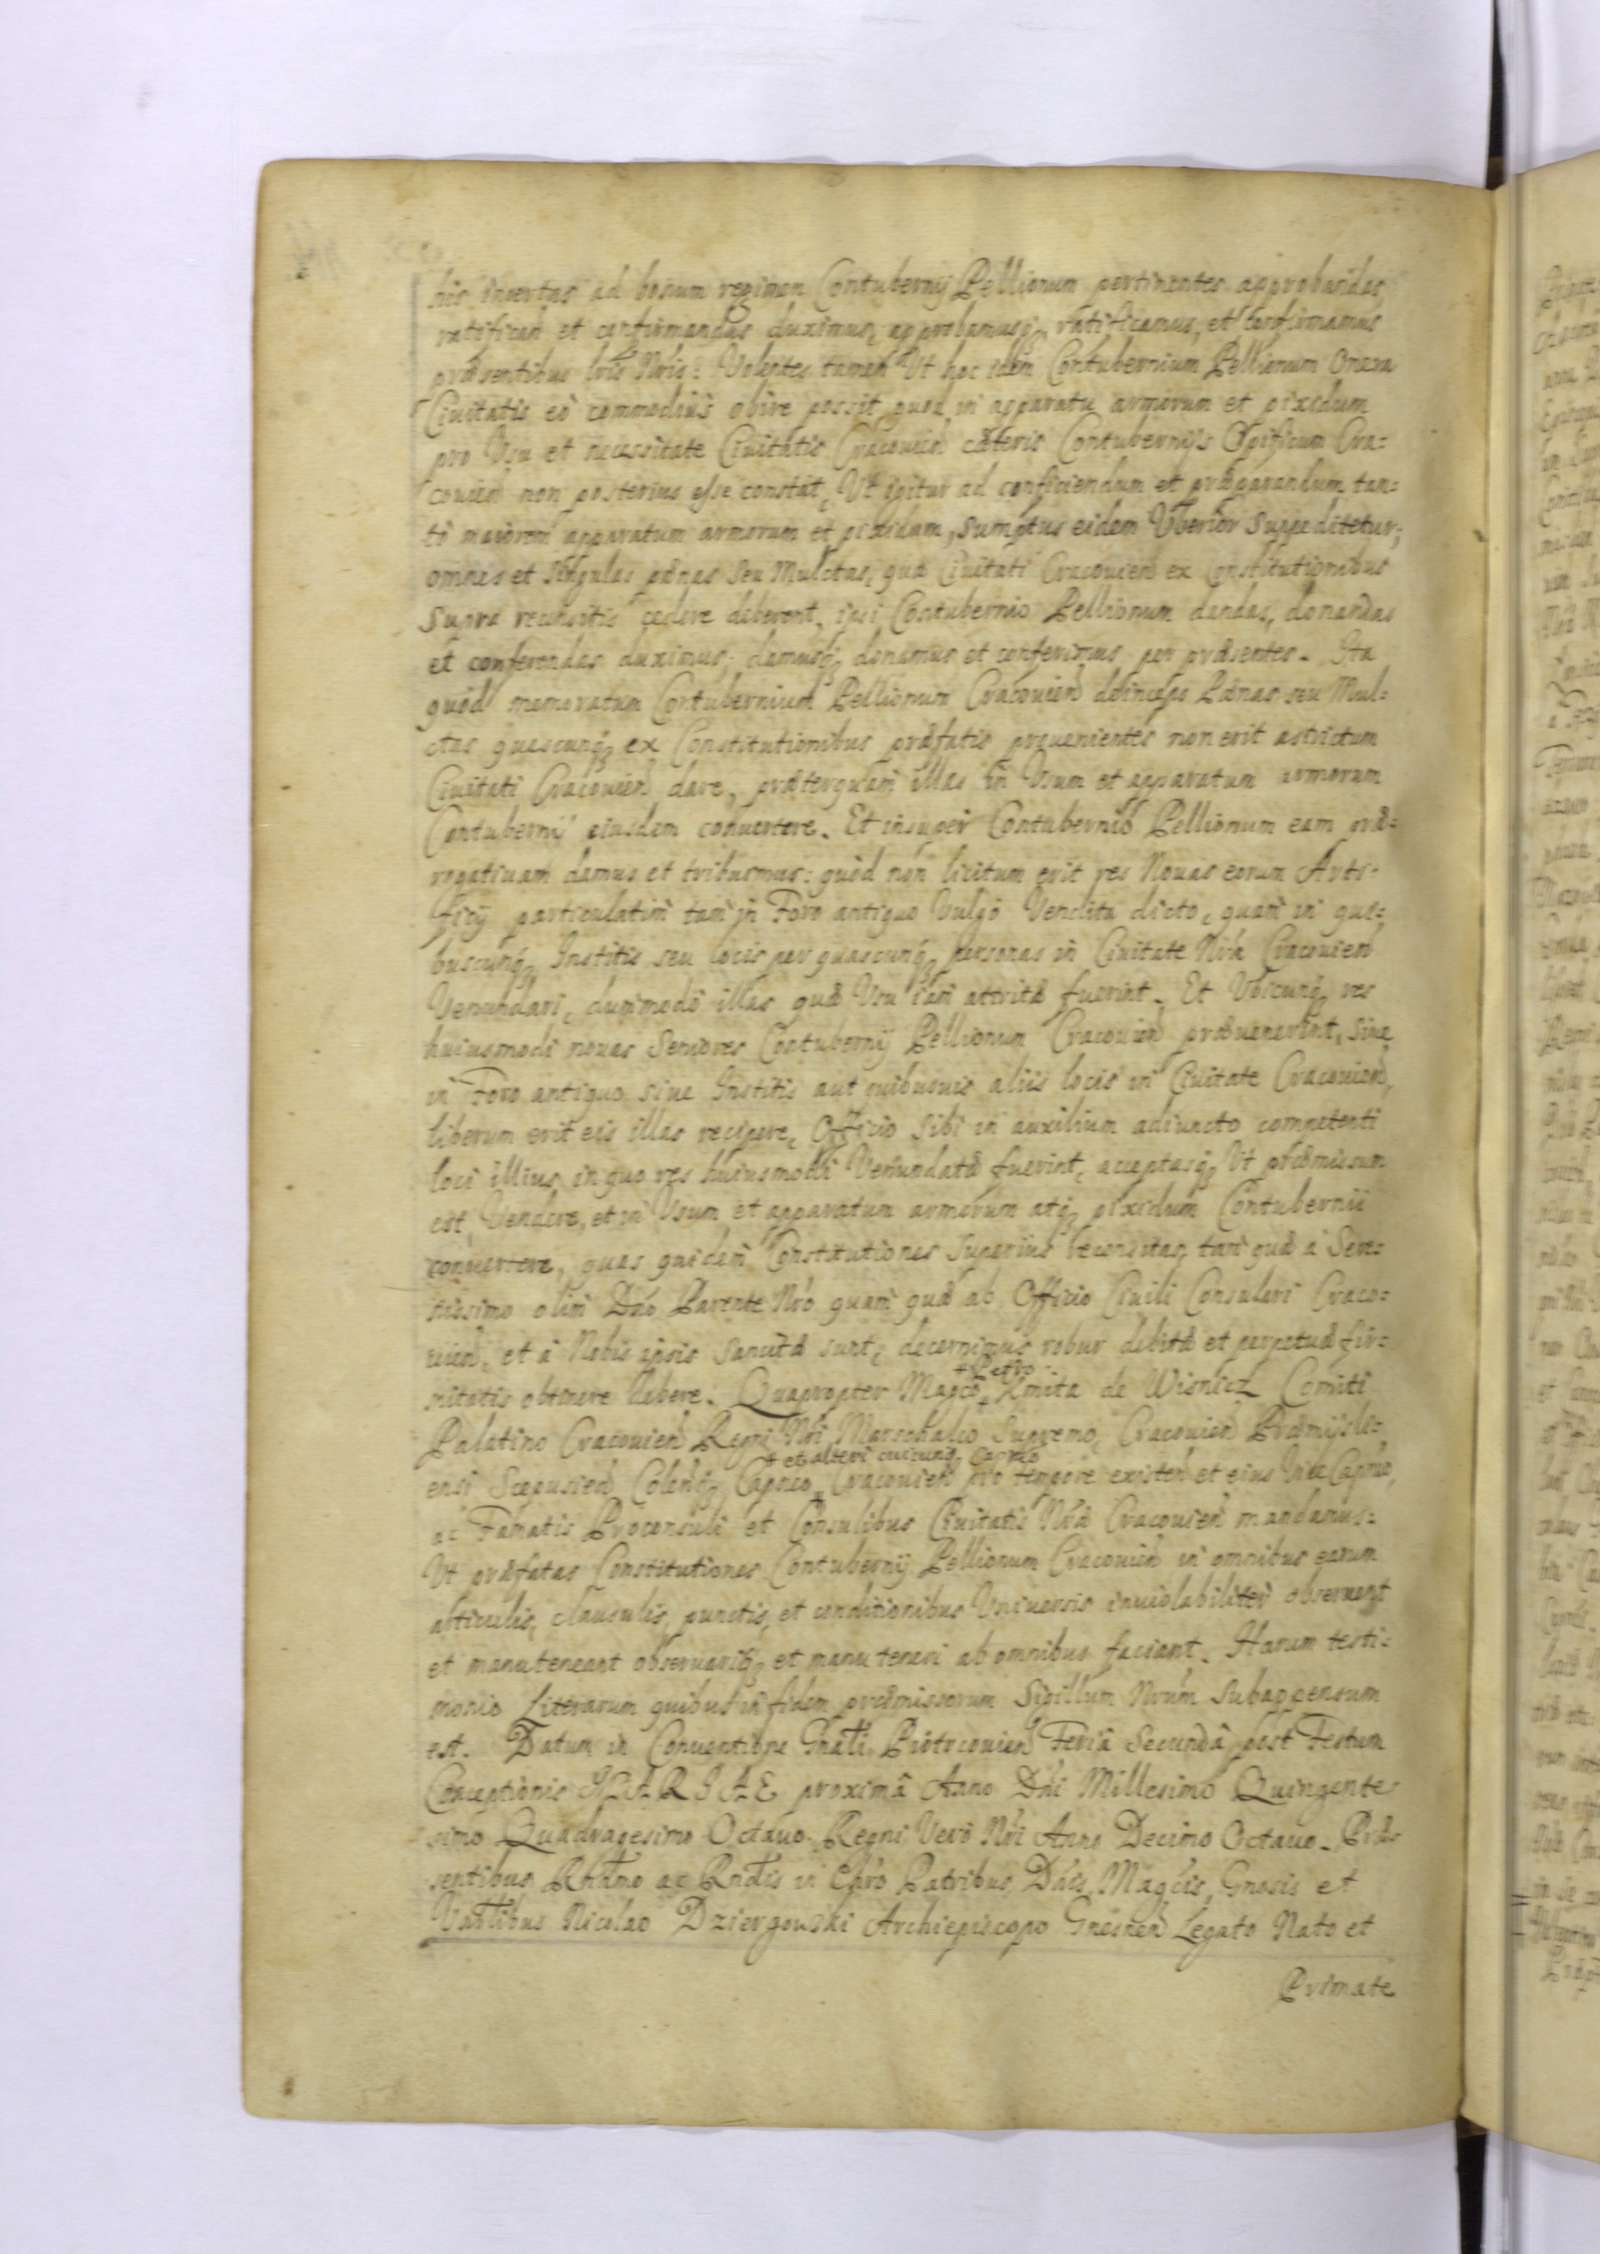 his insertas ad bonum regimen Contubernij Pellionum pertinentes approbandas,
ratifican et confirmandas duximus, approbamusq, ratificamus, et confirmamus
præsentibus lris Nris: Volentes tamen Vt hoc idem Contubernium Pellionum Onera
Ciuitatis eò commodiùs obire possit quod in apparatu armorum et pixidum
pro Vsu et necessitate Ciuitatis Cracouien cæteris Contubernijs Opificum Cra-
couien non posterius esse constat, Vt igitur ad conficiendum et præparandum tan-
tò maiorem apparatum armorum et pixidum, sumptus eidem Vberior suppeditetur;
omnes et singulas pænas seu Mulctas, quæ Ciuitati Cracouien ex Constitutionibus
supra recensitis cedere deberent, ipsi Contubernio Pellionum dandas, donandas
et conferendas duximus; damusq, donamus et conferimus per præsentes. Ita
quòd memoratum Contubernium Pellionum Cracouien deinceps Pænas seu Mul-
ctas quascunq, ex Constitutionibus præfatis prouenientes non erit astrictum
Ciuitati Cracouien dare, præterquam illas in Vsum et apparatum armorum
Contubernij eiusdem conuertere. Et insuper Contubernio Pellionum eam præ-
rogatiuam damus et tribuimus: quòd non licitum erit res Nouas eorum Arti-
ficij particulatim tam in Foro antiquo Vulgò Vendita dicto, quam in qui-
buscunq, Institis seu locis per quascunq, personas in Ciuitate Nra Cracouien
Venundari, dummodò illas quæ Vsu iam attritæ fuerint. Et Vbicunq, res
huiusmodi nouas Seniores Contubernij Pellionum Cracouien præuenerint, siue
in Foro antiquo siue Institis aut quibusuis aliis locis in Ciuitate Cracouien,
liberum erit eis illas recipere, Officio sibi in auxilium adiuncto competenti
loci illius in quo res huiusmodi Venundatæ fuerint, acceptasq, Vt præmissum
est Vendere, et in Vsum et apparatum armorum atq, pixidum Contubernii
conuertere, quas quidem Constitutiones superius recensitas, tam quæ à Sere-
nissimo olim Dno Parente Nro quam quæ ab Officio Ciuili Consulari Craco-
uien, et à Nobis ipsis sancitæ sunt, decernimus robur debitæ et perpetuæ fir-
mitatis obtinere debere. Quapropter Magco + Petro + Kmita de Wisnicz Comiti
Palatino Cracouien Regni Nri Marschalco Supremo, Cracouien Præmijsli-
ensi Scepusien Colenq, Capneo + et alteri cuicunq, Capneo Cracouien pro tempore existen et eius Vice Capneo,
ac Famatis Proconsuli et Consulibus Ciuitatis Nræ Cracouien mandamus:
Vt præfatas Constitutiones Contubernij Pellionum Cracouien in omnibus earum
articulis, clausulis, punctis, et conditionibus Vniuersis inuiolabiliter obseruent
et manuteneant obseruariq, et manuteneri ab omnibus faciant. Harum testi-
monio Literarum quibus in fidem præmissorum Sigillum Nrum subappensum
est. Datum in Conuentione Gnali Piotrcouien Feriâ Secundâ post Festum
Conceptionis MARIAE proximâ Anno Dni Millesimo Quingente-
simo Quadragesimo Octauo. Regni Verò Nri Anno Decimo Octauo. Præ-
sentibus Rndmo ac Rndis in Chro Patribus, Dnis, Magcis, Gnosis et
Vantibus Nicolao Dziergouski Archiepiscopo Gnesnen Legato Nato et
Primate